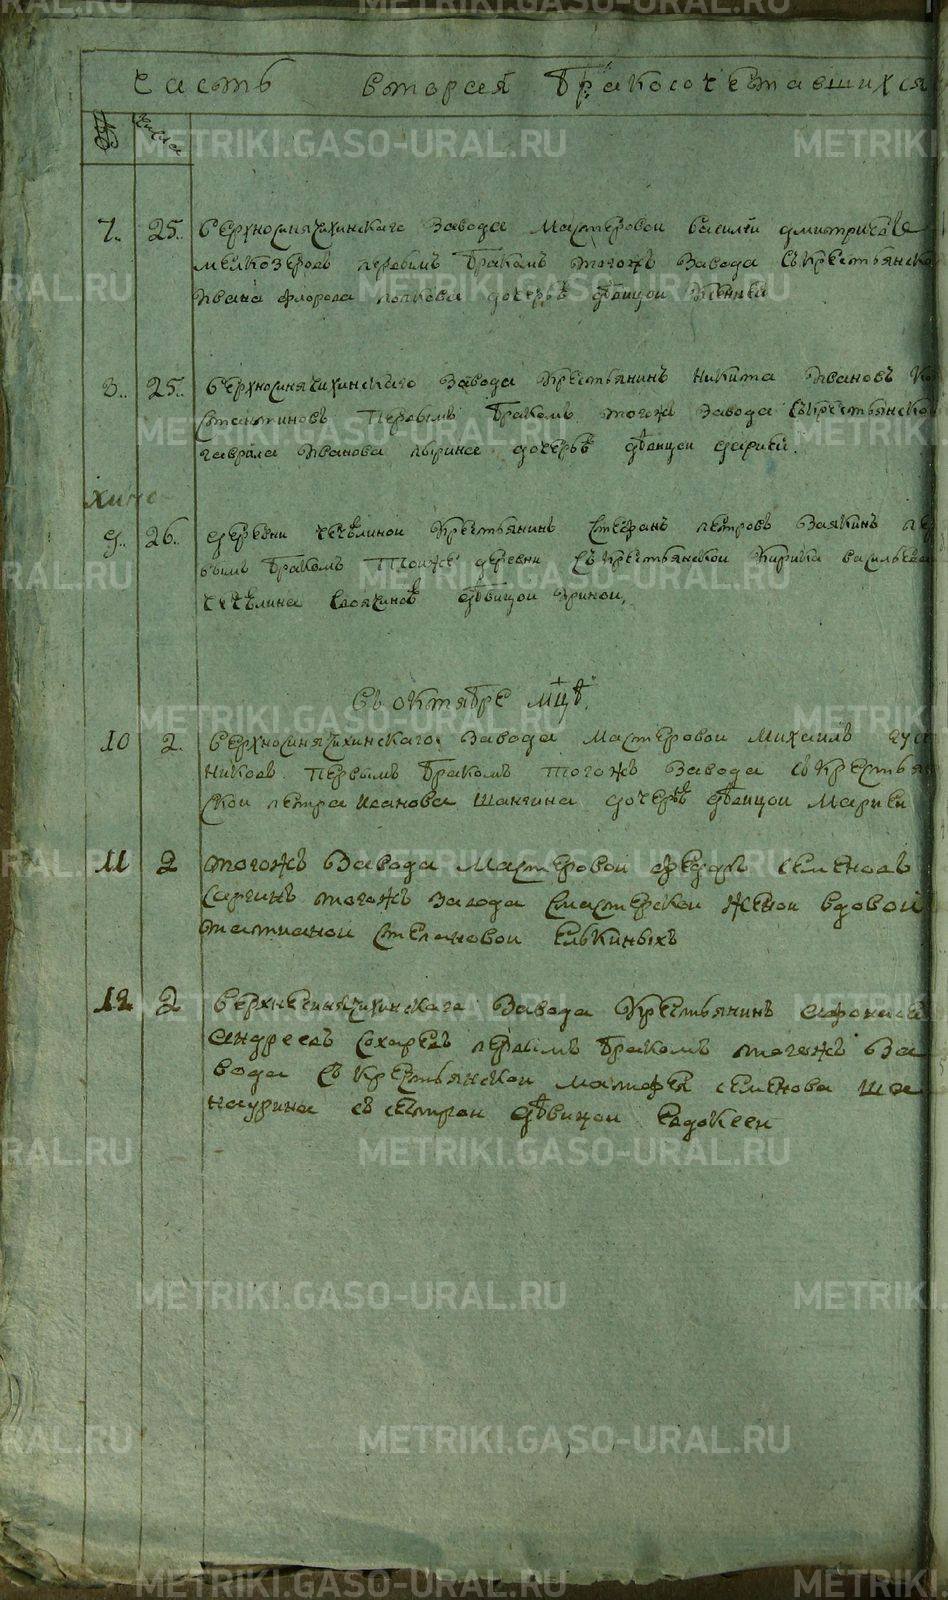 часть вторая бракосочетавшихся
№ числа
7. 25. Верхносинячихинскаго завода мастеровои василеи дмитриевъ
мелкозеровъ первымъ бракомъ тогожъ завода съ крестьянско
Ивана флорова попкова дочерью девицои Ксениеи
8. 25. Верхносинячихинскаго завода крестьянинъ никита Ивановъ Ко
стантиновъ первымъ бракомъ тогожъ завода съ крестьянско
гаврила Иванова пырина дочерью девицои дариеи.
9. 26. деревни чечулинои крестьянинъ Стефанъ петровъ Заякинъ пер
вымъ бракомъ тоижъ деревни съ крестьянскои Кирика васильева
чечулина девицои Ириною,
въ октябре мцѣ
10 2. Верхносинячихинскаго завода мастеровои михаилъ
никовъ первымъ бракомъ тогожъ завода съ крестья
скои петра Иванова Шангина дочерью девицои Мариеи
11 2 тогожъ завода мастеровои федоръ семеновъ
Саргинъ тогожъ завода смастерскои женои вдовои
татианои степановои Елькиныхъ
12 2 Верхнесинячихинскаго завода крестьянинъ афонасеи
андреевъ Сохаревъ первымъ бракомъ тогожъ за
вода съ крестьянскои матфея семенова ша
наурина съ сестрои девицои Евдокееи
METRIKI.GASO-URAL.RU